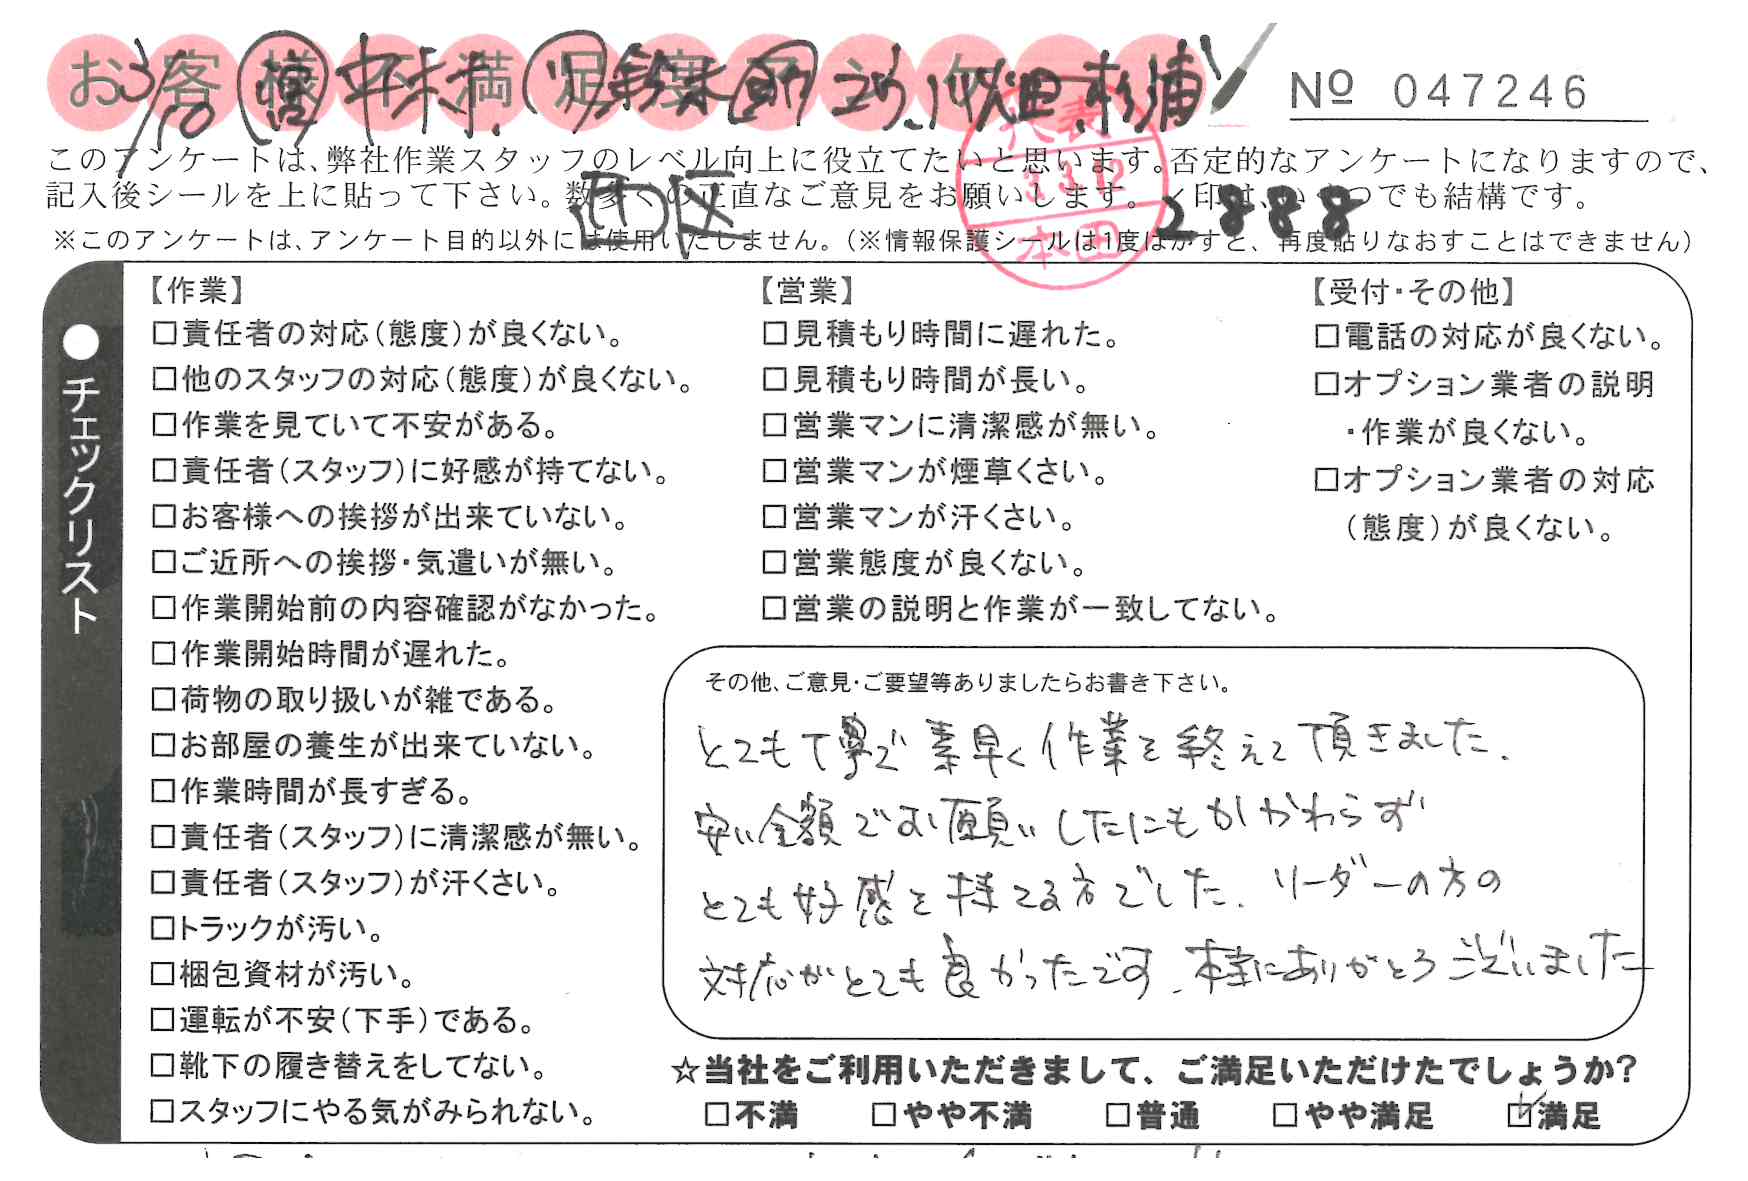 お客様不満足度アンケート
3/10 営 中村、リ 鈴木 助 秋田 杉浦
№ 047246
このアンケートは、弊社作業スタッフのレベル向上に役立てたいと思います。否定的なアンケートになりますので、
記入後シールを上に貼って下さい。数多くの正直なご意見をお願いします。✓印は、いくつでも結構です。
代表
3.3.12
本田
西区
2888
※このアンケートは、アンケート目的以外には使用いたしません。(※情報保護シールは1度はがすと、再度貼りなおすことはできません)
●チェックリスト
【作業】
□責任者の対応(態度)が良くない。
□他のスタッフの対応(態度)が良くない。
□作業を見ていて不安がある。
□責任者(スタッフ)に好感が持てない。
□お客様への挨拶が出来ていない。
□ご近所への挨拶・気遣いが無い。
□作業開始前の内容確認がなかった。
□作業開始時間が遅れた。
□荷物の取り扱いが雑である。
□お部屋の養生が出来ていない。
□作業時間が長すぎる。
□責任者(スタッフ)に清潔感が無い。
□責任者(スタッフ)が汗くさい。
□トラックが汚い。
□梱包資材が汚い。
□運転が不安(下手)である。
□靴下の履き替えをしてない。
□スタッフにやる気がみられない。
【営業】
□見積もり時間に遅れた。
□見積もり時間が長い。
□営業マンに清潔感が無い。
□営業マンが煙草くさい。
□営業マンが汗くさい。
□営業態度が良くない。
□営業の説明と作業が一致してない。
【受付・その他】
□電話の対応が良くない。
□オプション業者の説明
・作業が良くない。
□オプション業者の対応
(態度)が良くない。
その他、ご意見・ご要望等ありましたらお書き下さい。
とても丁寧で素早く作業を終えて頂きました。
安い金額でお願いしたにもかかわらず
とても好感を持てる方でした。リーダーの方の
対応がとても良かったです。本当にありがとうございました
☆当社をご利用いただきまして、ご満足いただけたでしょうか?
□不満 □やや不満 □普通 □やや満足 ☑満足